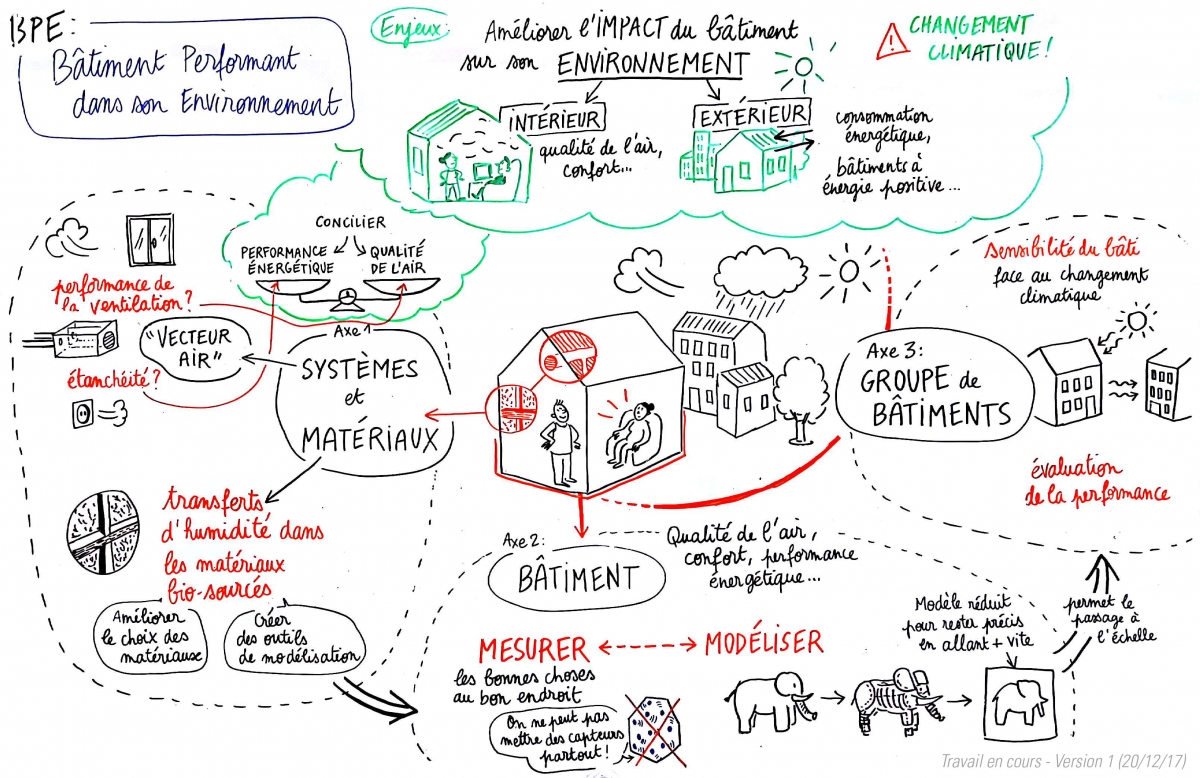 BPE:
Bâtiment Performant
dans son Environnement
Enjeux:
Améliorer l'IMPACT du bâtiment
sur son ENVIRONNEMENT
CHANGEMENT
CLIMATIQUE!
INTÉRIEUR
qualité de l'air,
confort...
EXTÉRIEUR
consommation
énergétique,
bâtiments à
énergie positive...
CONCILIER
PERFORMANCE
ÉNERGÉTIQUE
QUALITÉ
DE L'AIR
performance de
la ventilation?
"VECTEUR
AIR"
étanchéité?
Axe 1
SYSTÈMES
et
MATÉRIAUX
transferts
d'humidité dans
les matériaux
bio-sourcés
Améliorer
le choix des
matériaux
Créer
des outils
de modélisation
Axe 2:
BÂTIMENT
Qualité de l'air,
confort, performance
énergétique...
MESURER
MODÉLISER
les bonnes choses
au bon endroit
On ne peut pas
mettre des capteurs
partout!
Modèle réduit
pour rester précis
en allant + vite
permet le
passage à
l'échelle
Axe 3:
GROUPE de
BÂTIMENTS
sensibilité du bâti
face au changement
climatique
évaluation
de la performance
Travail en cours - Version 1 (20/12/17)